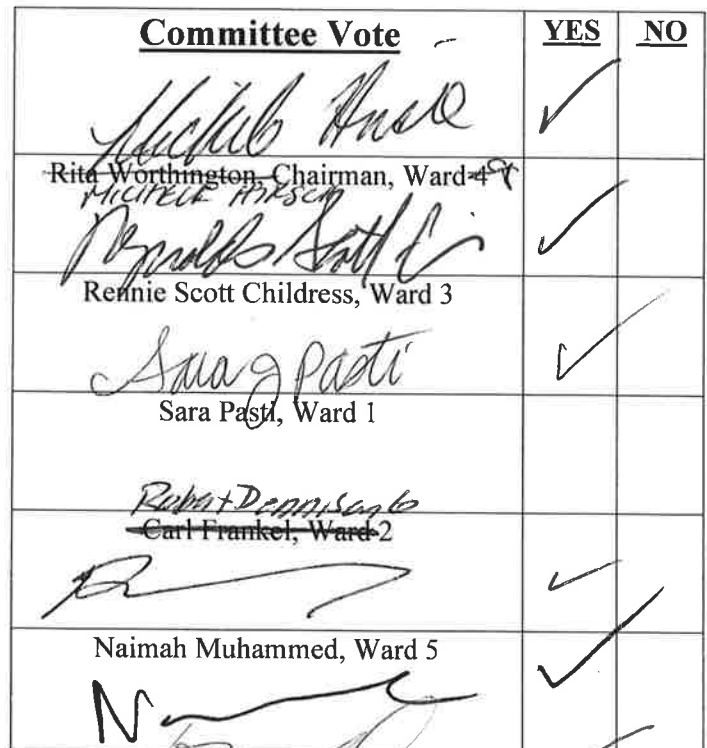 Committee Vote YES NO
Rita Worthington, Chairman, Ward 4 9
MICHELE HIRSCH
Rennie Scott Childress, Ward 3
Sara Pasti
Sara Pasti, Ward 1
Robert Dennison 6
Carl Frankel, Ward 2
Naimah Muhammed, Ward 5